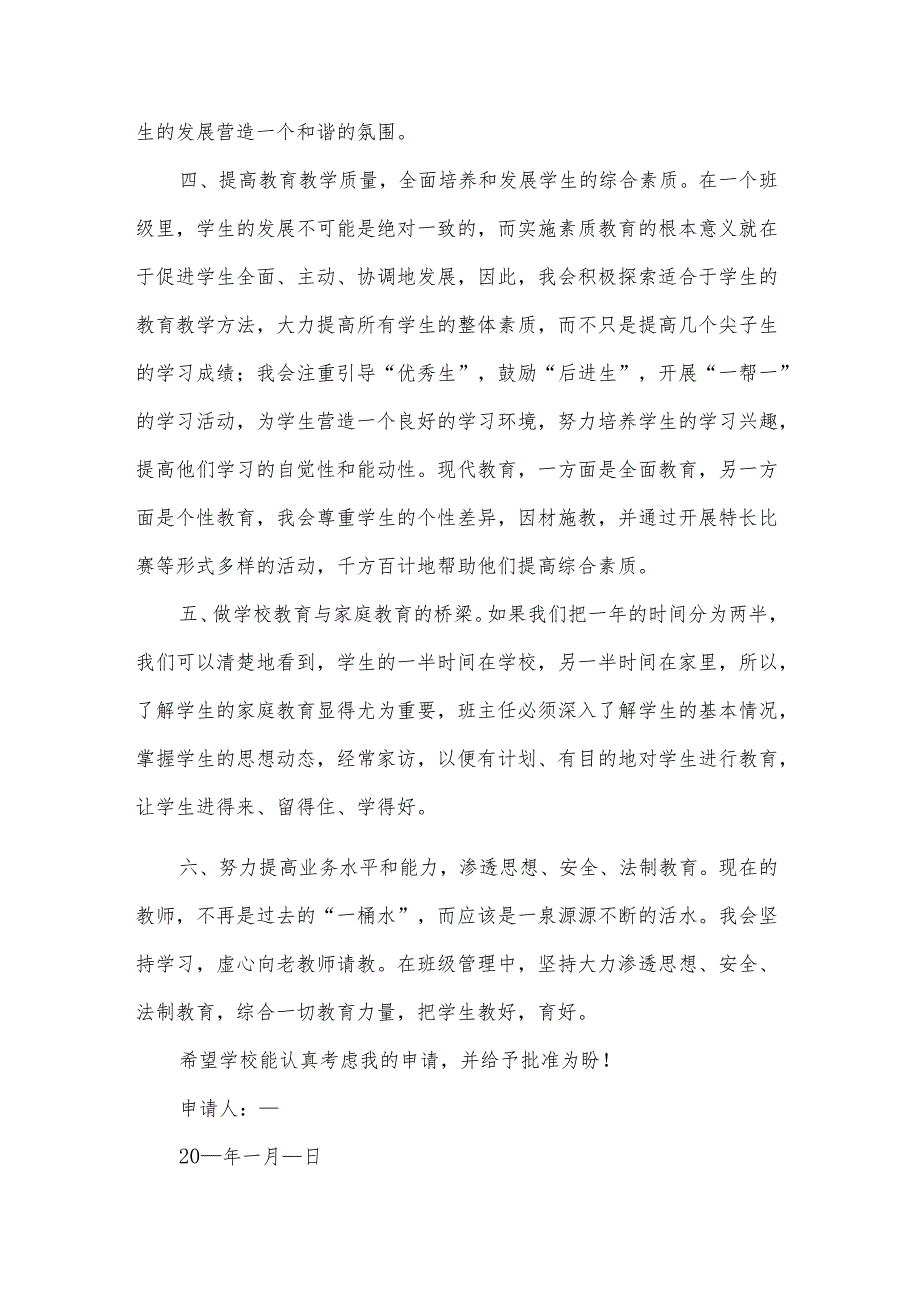 生的发展营造一个和谐的氛围。
四、提高教育教学质量，全面培养和发展学生的综合素质。在一个班
级里，学生的发展不可能是绝对一致的，而实施素质教育的根本意义就在
于促进学生全面、主动、协调地发展，因此，我会积极探索适合于学生的
教育教学方法，大力提高所有学生的整体素质，而不只是提高几个尖子生
的学习成绩；我会注重引导“优秀生”，鼓励“后进生”，开展“一帮一”
的学习活动，为学生营造一个良好的学习环境，努力培养学生的学习兴趣，
提高他们学习的自觉性和能动性。现代教育，一方面是全面教育，另一方
面是个性教育，我会尊重学生的个性差异，因材施教，并通过开展特长比
赛等形式多样的活动，千方百计地帮助他们提高综合素质。
五、做学校教育与家庭教育的桥梁。如果我们把一年的时间分为两半，
我们可以清楚地看到，学生的一半时间在学校，另一半时间在家里，所以，
了解学生的家庭教育显得尤为重要，班主任必须深入了解学生的基本情况，
掌握学生的思想动态，经常家访，以便有计划、有目的地对学生进行教育，
让学生进得来、留得住、学得好。
六、努力提高业务水平和能力，渗透思想、安全、法制教育。现在的
教师，不再是过去的“一桶水”，而应该是一泉源源不断的活水。我会坚
持学习，虚心向老教师请教。在班级管理中，坚持大力渗透思想、安全、
法制教育，综合一切教育力量，把学生教好，育好。
希望学校能认真考虑我的申请，并给予批准为盼！
申请人：—
20—年一月—日